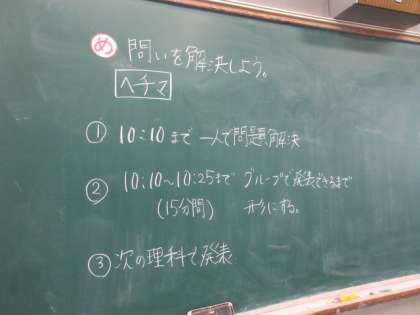 め 問いを解決しよう。
ヘチマ
① 10:10まで 一人で問題解決
② 10:10~10:25まで グループで発表できるまで
(15分間) 形にする。
③ 次の理科で発表